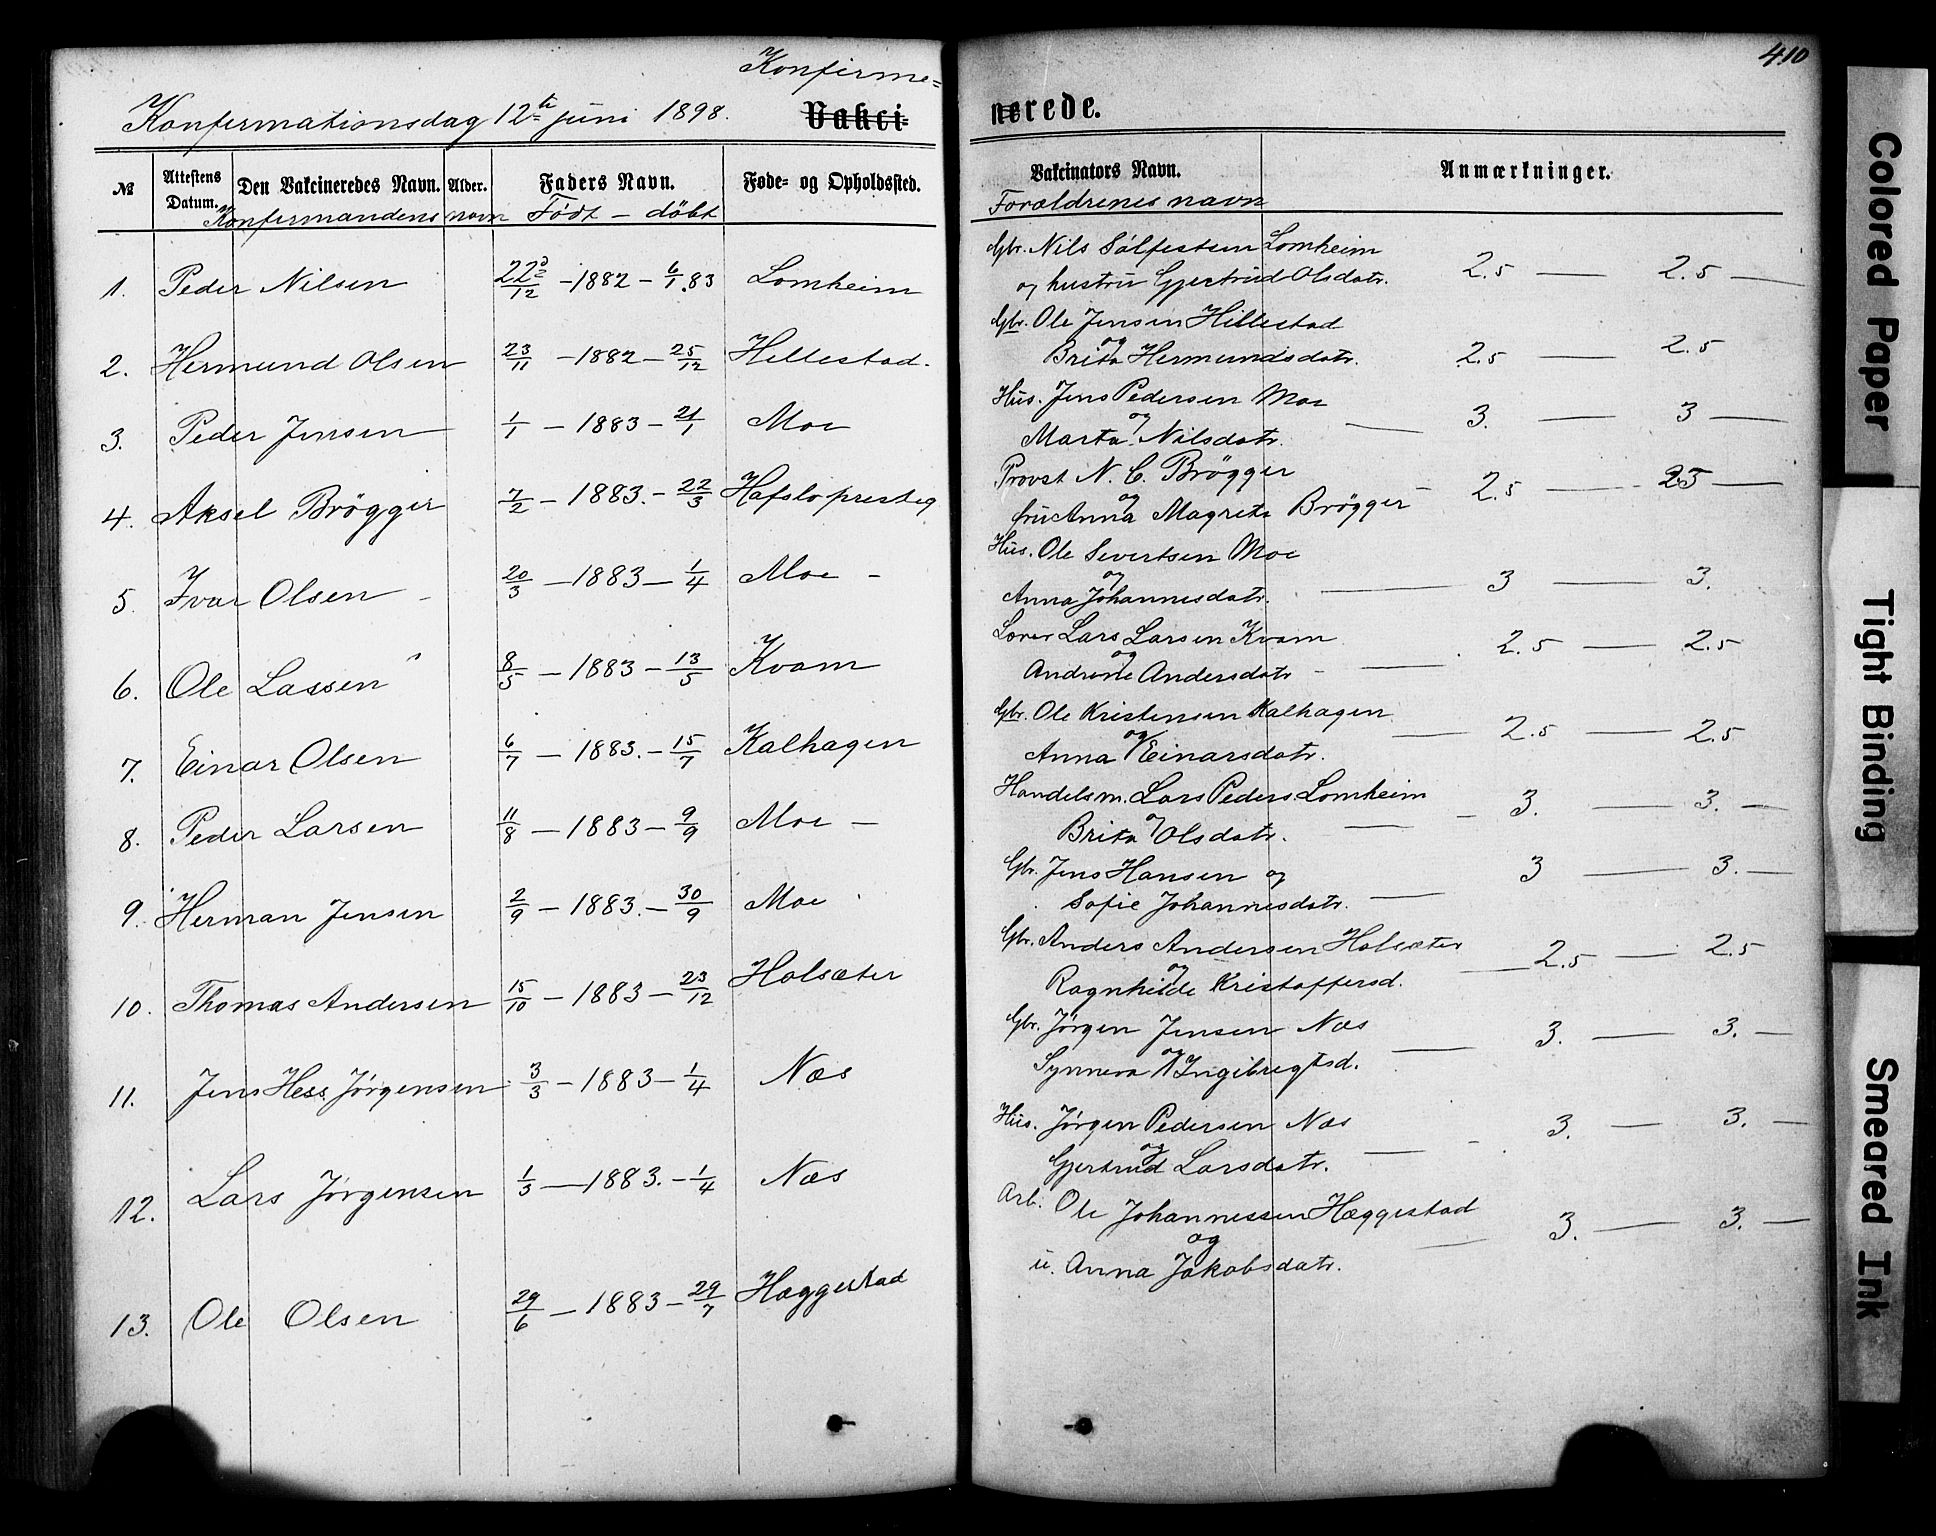 410
Konfirme=
Konfirmationsdag 12te juni 1898. Vakci-
nerede.
№ Attestens Datum. Den Vakcineredes Navn. Alder. Faders Navn. Føde- og Opholdssted. Vakcinators Navn. Anmærkninger.
Konfirmandens navn Födt - döbt Forældrenes navn
Gbr. Nils Sölfestsen Lomheim
1. Peder Nilsen 22/12 - 1882 - 6/1.83 Lomheim og hustru Gjertrud Olsdatr. 2.5 — 2.5 —
Gbr. Ole Jensen Hillestad
2. Hermund Olsen 23/11 - 1882 - 25/12 Hillestad. og Brita Hermundsdatr. 2.5 — 2.5
Hus. Jens Pedersen Moe
3. Peder Jensen 1/1 - 1883 - 21/1 Moe og Marta Nilsdatr. — 3. — 3 —
Provst N. C. Brögger
4. Aksel Brögger 7/2 - 1883. - 22/3 Hafslo presteg og fru Anna Magrete Brögger - 2.5 — 2.5 —
Hus. Ole Severtsen Moe
5. Ivar Olsen - 20/3 - 1883 - 1/4 Moe - og Anna Johannesdatr. — 3 — 3.
Lars Larsen Kvam
6. Ole Lassen 8/5 - 1883 - 13/5 Kvam og Andrine Andersdatr - — 2.5 — 2.5
Gbr. Ole Kristensen Kalhagen
7. Einar Olsen 6/7 - 1883. - 15/7 Kalhagen og Anna Einarsdatr. — 2.5 — 2.5
Handelsm. Lars Peders. Lomheim
8. Peder Larsen 11/8 - 1883 - 9/9 Moe - og Brita Olsdatr. — 3. — 3. —
Gbr. Jens Hansen og
9. Herman Jensen 2/9 - 1883. - 30/9 Moe Sofie Johannesdatr. — 3 — 3. —
Gbr. Anders Andersen Holsæter
10. Thomas Andersen 15/10 - 1883 - 23/12 Holsæter og Ragnhilde Kristoffersd. — 2.5 — 2.5
Gbr. Jørgen Jensen Næs
11. Jens Hess Jørgensen 3/3 - 1883 - 1/4 Næs og Synneva Ingibregtsd. — 3. — 3. —
Hus. Jörgen Pedersen Næs
12. Lars Jörgensen 1/3 - 1883. - 1/4 Næs og Gjertrud Larsdatr. — 3. — 3. —
Arb. Ole Johannessen Hæggestad
13. Ole Olsen 29/6 - 1883 - 29/7 Hæggestad og u. Anna Jakobsdatr. — 3. — 3. —
Colored Paper
Tight Binding
Smeared Ink